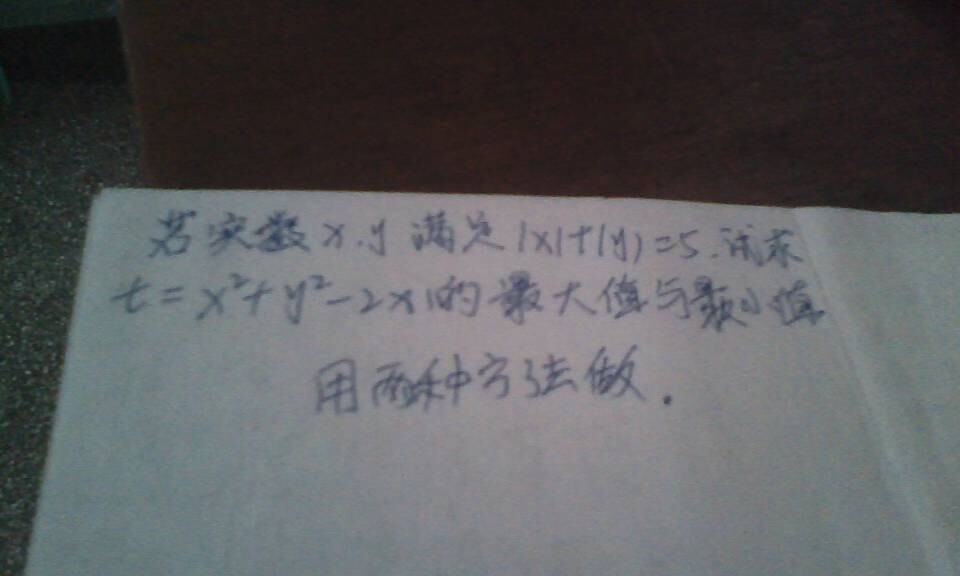 若实数x.y满足|x|+|y|=5.试求
t=x²+y²-2x的最大值与最小值
用两种方法做.